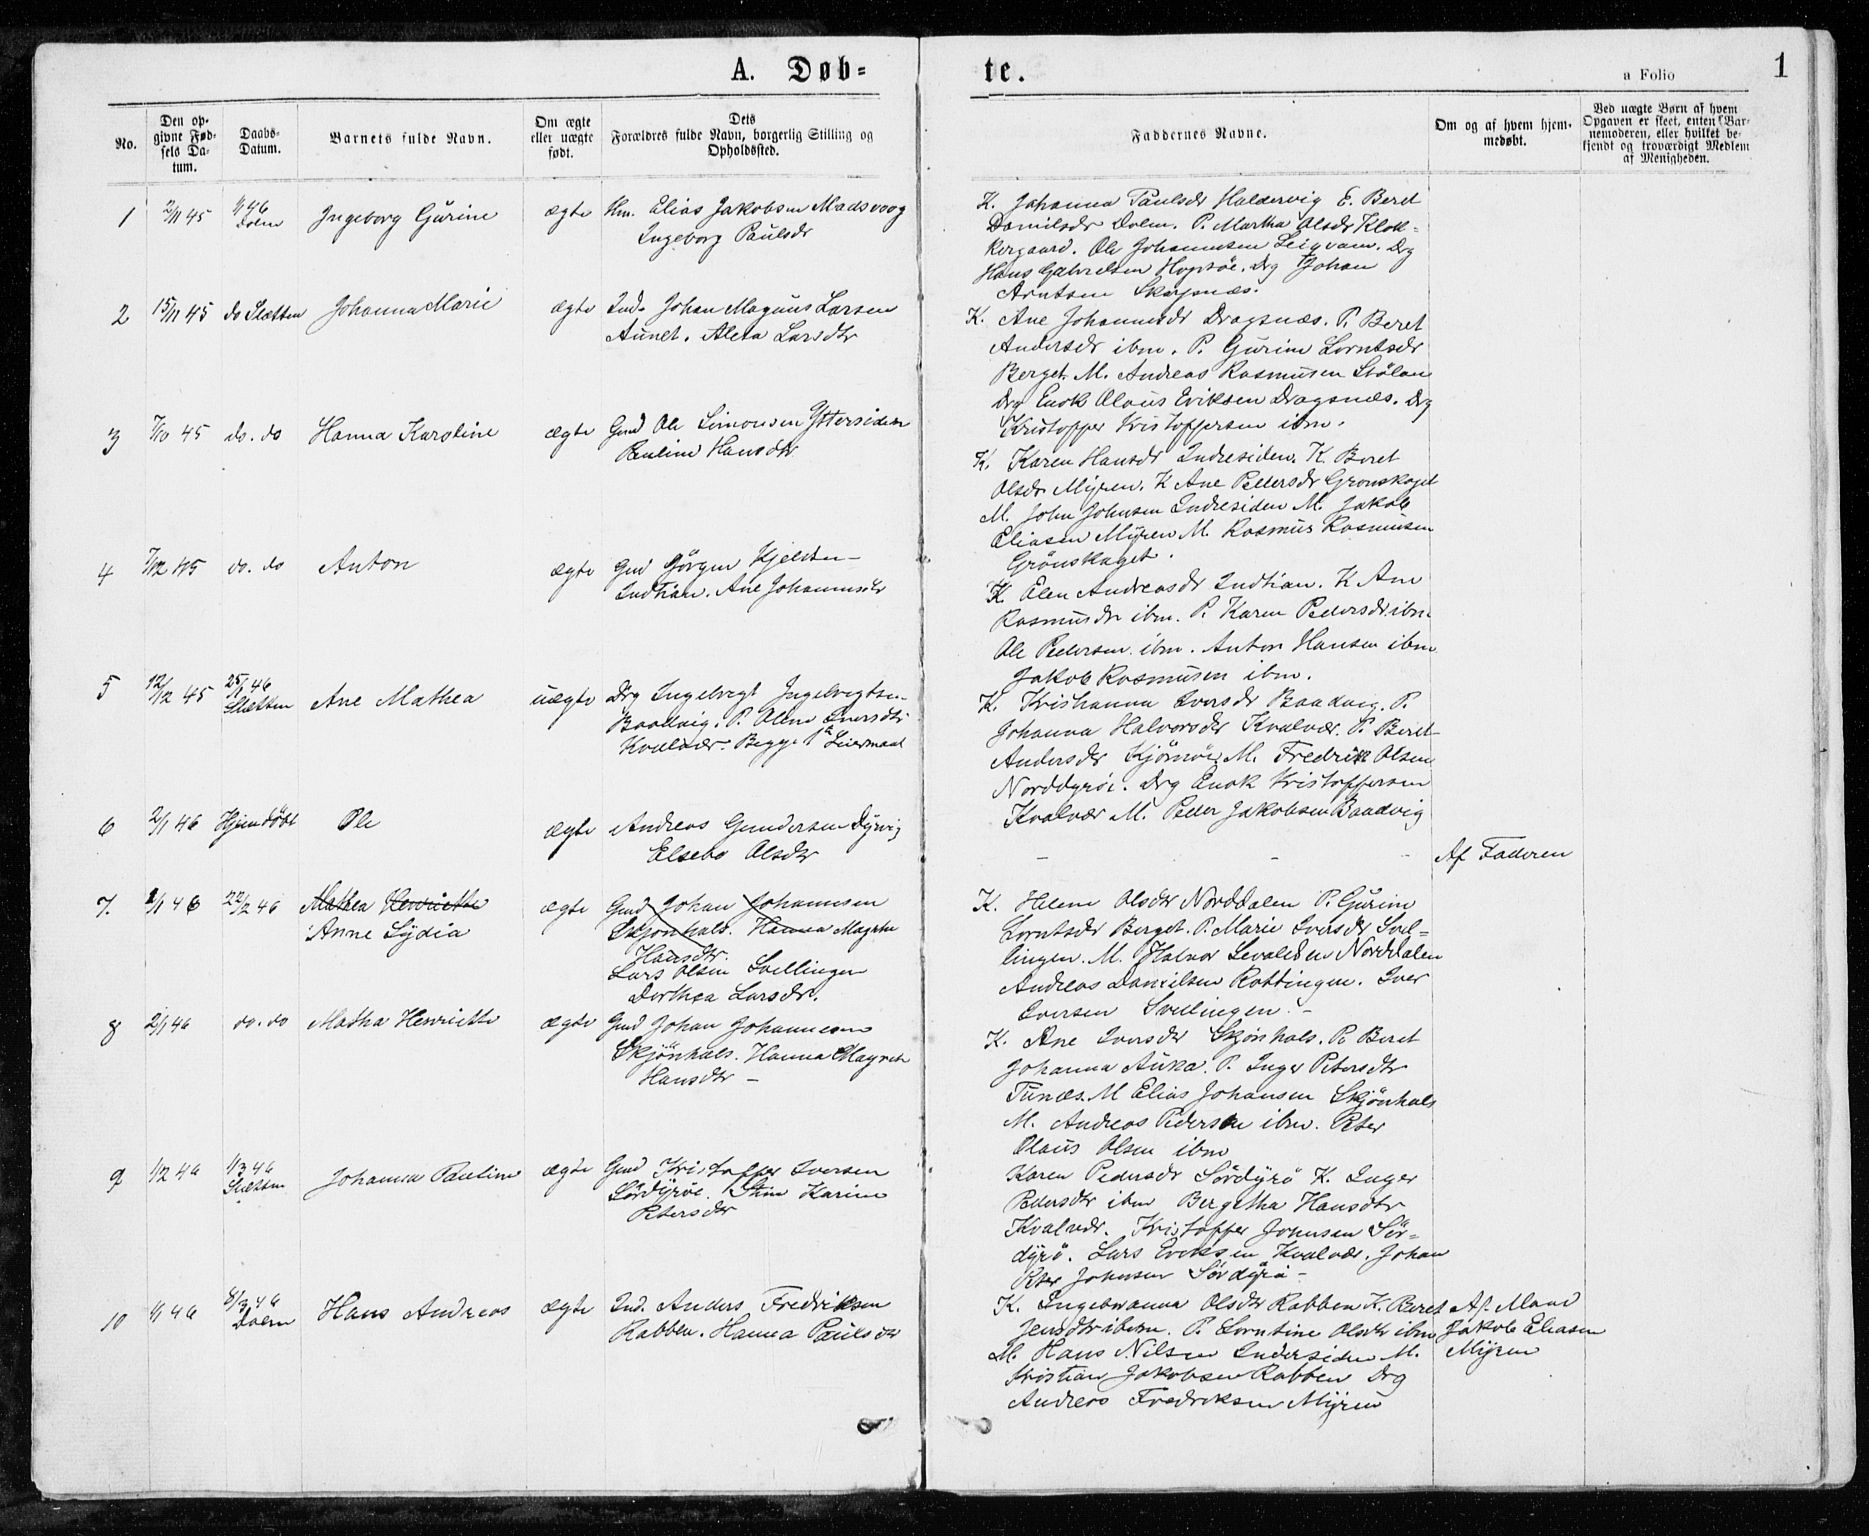 A. Døb=
te.
a Folio
1
No.
Den op-
givne Fød-
sels Da-
tum.
Daabs-
Datum.
Barnets fulde Navn.
Om ægte
eller uægte
født.
Dets
Forældres fulde Navn, borgerlig Stilling og
Opholdssted.
Faddernes Navne.
Om og af hvem hjem-
medøbt.
Ved uægte Børn af hvem
Opgaven er skeet, enten Bar-
nemoderen, eller hvilket be-
kjendt og troværdigt Medlem
af Menigheden.
1
2/11 45
1/1 46
Dolm
Ingeborg Gurine
ægte
Hm. Elias Jakobsen Madsvoog
Ingeborg Paulsdr
K. Johanna Paulsdr Haldorvig E. Beret
Danielsdr Dolm. P. Martha Olsdr Klok-
kergaard. Ole Johannesen Leigvam. Drg
Hans Gabrielsen Hopsøe. Drg Johan
Arntsen Skarpnæs.
2
15/11 45
do Slætten
Johanna Marie
ægte
Ind. Johan Magnus Larsen
Aunet. Aleta Larsdtr
K. Ane Johannesdr Dragsnæs. P. Beret
Andersdr ibm. P. Gurine Lorntsdr
Berget M. Andreas Rasmusen Stølan
Drg Enok Olaus Eriksen Dragsnæs. Drg
Kristopper Kristoffersen ibm.
3
7/10 45
do. do
Hanna Karstine
ægte
Gmd Ole Simonsen Yttersiden
Pauline Hansdtr
K. Karen Hansdr Indresiden. K. Beret
Olsdr Myren. K Ane Pedersdr Grønskaget
M. John Johnsen Indresiden M. Jakob
Eliasen Myren M. Rasmus Rasmusen
Grønskaget.
4
7/12 45
do. do
Anton
ægte
Gmd Jørgen Kjeldsen
Indtian. Ane Johannesdr
K. Elen Andreasdr Indtian. K Ane
Rasmusdr ibm. P. Karen Pedersdr ibm.
Ole Pedersen ibm. Anton Hansen ibm
Jakob Rasmusen ibm.
5
12/12 45
25/1 46
Slætten
Ane Mathea
uægte
Drg Ingebrigt Ingebrigtsen
Baadvig. P. Olene Iversdtr
Kvalvær. Begge 1ste Leiermaal
K. Krishanna Iversdr Baadvig. P.
Johanna Halvorsdr Kvalvær. P. Beret
Andersdr Kjørnøe M. Fredrik Olsen
Norddyrøi. Drg Enok Kristoffersen
Kvalvær M. Peder Jakobsen Baadvig
6
2/1 46
Hjemdøbt
Ole
ægte
Andreas Gundersen Dyrvig
Elsebe Olsdtr
- - -
Af Faderen
7.
1/1 46
22/2 46
Mathea Henriette
Anne Lydia
ægte
Gmd Johan Johannesen
Skjønhals. Hanna Magrete
Hansdtr.
Lars Olsen Svellingen
Dorthea Larsdr.
K. Helene Olsdtr Norddalen P. Gurine
Lorntsdr Berget. P. Marie Iversdr Svel-
lingen. M. Halvor Sevaldsen Norddalen
Andreas Danielsen Rottingen. Iver
Iversen Svellingen.
8
2/1 46
do. do
Mathea Henriette
ægte
Gmd Johan Johannesen
Skjønhals. Hanna Magrete
Hansdtr
K. Ane Iversdtr Skjønhals. P. Beret
Johanna Auka. P. Inger Petersdtr
Tunæs. M Elias Johansen Skjønhals
M. Andreas Pedersen ibm. Peter
Olaus Olsen ibm
9
1/2 46
1/3 46
Slætten
Johanna Pauline
ægte
Gmd Kristoffer Iversen
Sørdyrøe. Karine
Petersdtr
Karen Pedersdr Sørdyrø K. Inger
Pedersdtr ibm Bergetha Hansdtr
Kvalvær. Kristoffer Johnsen Sør-
dyrø. Lars Eriksen Kvalvær. Johan
Peter Johnsen Sørdyrø
10
1/1 46
8/3 46
Dolm
Hans Andreas
ægte
Ind. Anders Fredriksen
Rabben. Hanna Paulsdtr
K. Ingebranna Olsdtr Rabben K. Beret
Jensdtr ibm. P. Lorntine Olsdtr ibm
M. Hans Nilsen Indersiden M.
Kristian Jakobsen Rabben Drg
Andreas Fredriksen Myren
Af Mand
Jakob Eliasen
Myren